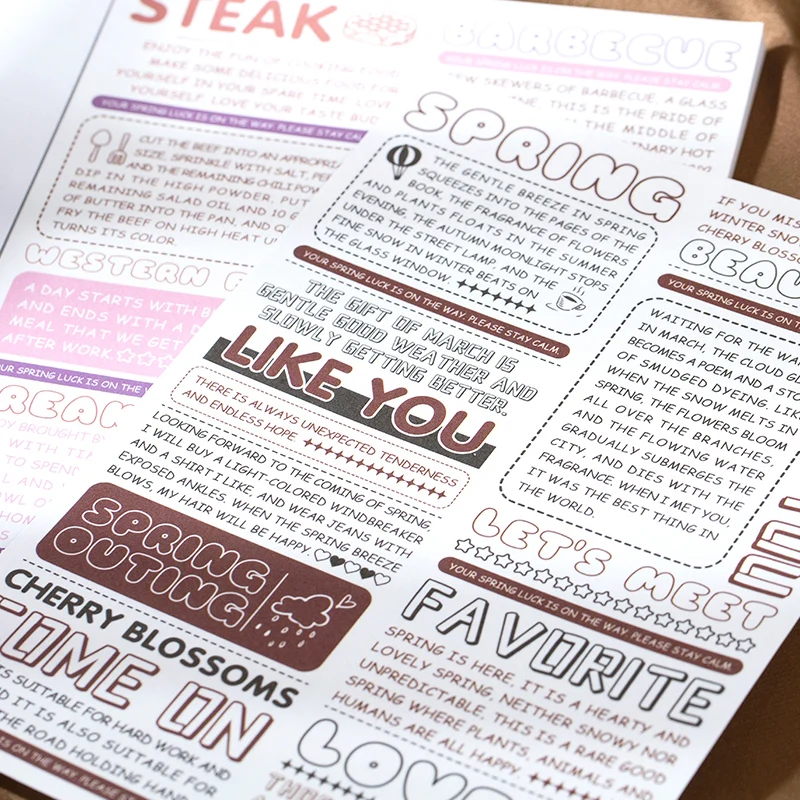 STEAK
ENJOY THE FUN OF COOKING FOOD
MAKE SOME DELICIOUS FOOD FOR
YOURSELF IN YOUR SPARE TIME. LOVE
YOURSELF LOVE YOUR TASTE BUD
YOUR SPRING LUCK IS ON THE WAY. PLEASE STAY CAL
CUT THE BEEF INTO AN APPROPRI
SIZE, SPRINKLE WITH SALT, PE
AND THE REMAINING CHILI POW
DIP IN THE HIGH POWDER. PUT
REMAINING SALAD OIL AND 10 G
OF BUTTER INTO THE PAN, AND
FRY THE BEEF ON HIGH HEAT U
TURNS ITS COLOR.
WESTERN F
A DAY STARTS WITH B
AND ENDS WITH A D
MEAL THAT WE GET
AFTER WORK
UR SPRING LUCK IS ON THE WAY.
REAK
OY BROUGHT BY
WITH TI
TO SPEND
AND
BARBECUE
YOUR SPRING LUCK IS ON THE WAY. PLEASE STAY CALM.
FEW SKEWERS OF BARBECUE, A GLASS
THIS IS THE PRIDE OF
THE MIDDLE OF
HOT
SPRING
THE GENTLE BREEZE IN SPRING
SQUEEZES INTO THE PAGES OF THE
BOOK, THE FRAGRANCE OF FLOWERS
AND PLANTS FLOATS IN THE SUMMER
EVENING, THE AUTUMN MOONLIGHT STOPS
UNDER THE STREET LAMP, AND THE
FINE SNOW IN WINTER BEATS ON
THE GLASS WINDOW.
YOUR SPRING LUCK IS ON THE WAY. PLEASE STAY CALM.
THE GIFT OF MARCH IS
GENTLE GOOD WEATHER AND
SLOWLY GETTING BETTER.
LIKE YOU
THERE IS ALWAYS UNEXPECTED TENDERNESS
AND ENDLESS HOPE
LOOKING FORWARD TO THE COMING OF SPRING,
I WILL BUY A LIGHT-COLORED WINDBREAKER
AND A SHIRT I LIKE, AND WEAR JEANS WITH
EXPOSED ANKLES. WHEN THE SPRING BREEZE
BLOWS, MY HAIR WILL BE HAPPY.
SPRING
OUTING
CHERRY BLOSSOMS
COME ON
IS SUITABLE FOR HARD WORK AND
D IT IS ALSO SUITABLE FOR
THE ROAD HOLDING HAN
IS ON THE WAY. PLEASE STAY CALM.
IF YOU MIS
WINTER SNO
CHERRY BLOSS
BEAU
YOUR SPRING LUCK IS ON T
WAITING FOR THE WA
IN MARCH, THE CLOUD GL
BECOMES A POEM AND A STO
OF SMUDGED DYEING. LIK
WHEN THE SNOW MELTS IN
SPRING, THE FLOWERS BLOOM
ALL OVER THE BRANCHES,
AND THE FLOWING WATER
GRADUALLY SUBMERGES THE
CITY, AND DIES WITH THE
FRAGRANCE. WHEN I MET YOU
IT WAS THE BEST THING IN
THE WORLD.
LET'S MEET
YOUR SPRING LUCK IS ON THE WAY. PLEASE STAY CALM.
FAVORITE
SPRING IS HERE. IT IS A HEARTY AND
LOVELY SPRING, NEITHER SNOWY NOR
UNPREDICTABLE. THIS IS A RARE GOOD
SPRING WHERE PLANTS, ANIMALS AND
HUMANS ARE ALL HAPPY.
LOVE